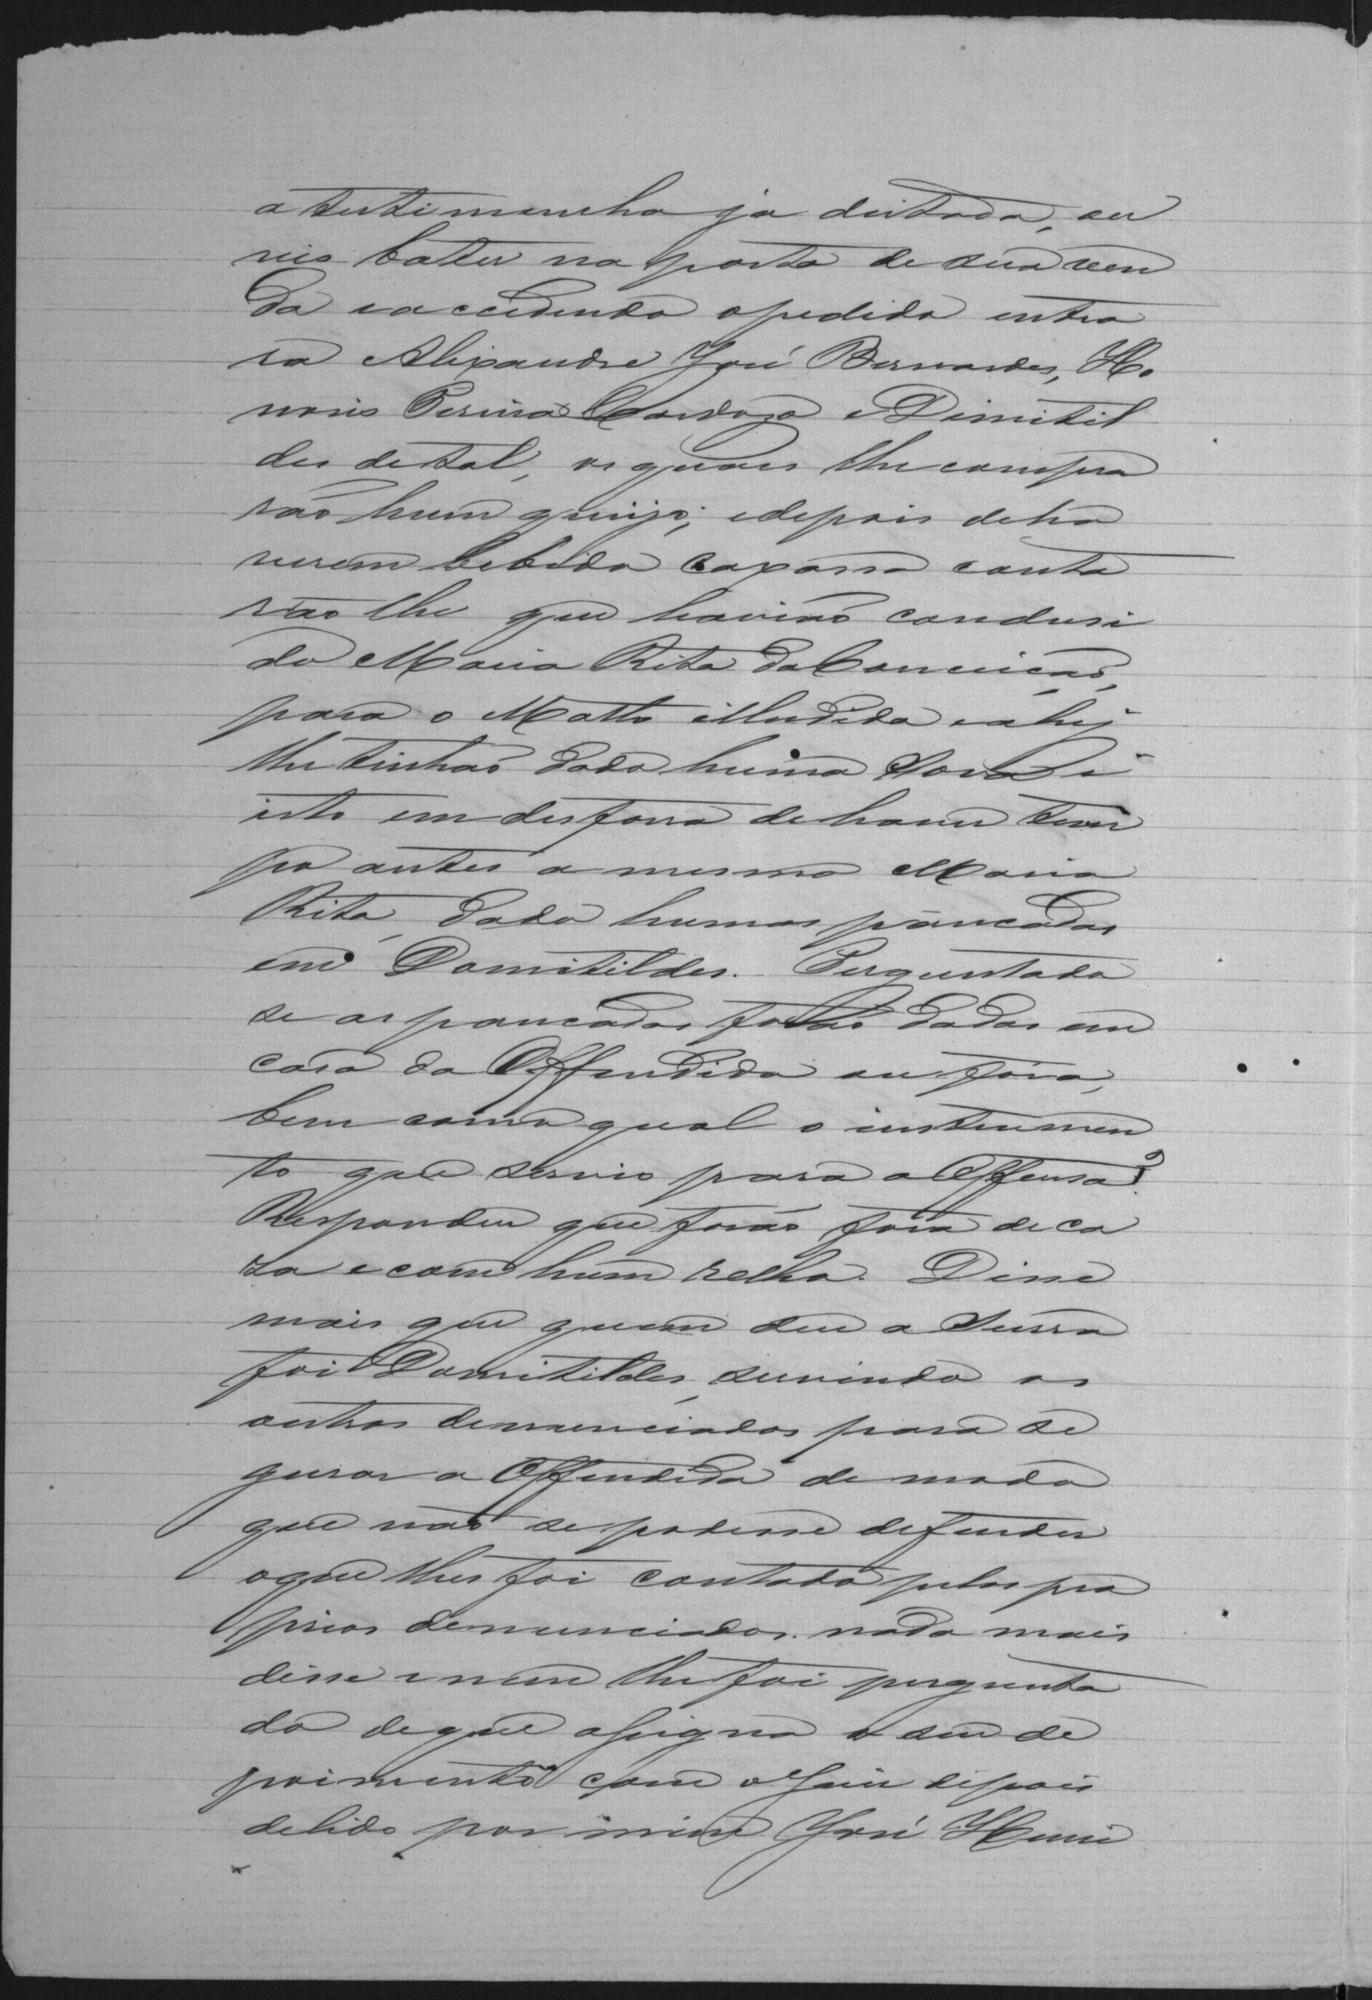 a testimunha ja deitada, ou
vio bater na porta de sua ven
da e accedendo o pedido entra
rá Alixandre José Bernardes, Ho
norio Pereira Cardozo e Dimitil
des de tal, os quaes lhe compra
rão hum queijo, e depois de ha
verem bebido caxassa conta
rão lhe que havião condusi
do Maria Rita da Conceicão,
para o Matto illudida e ahi
lhe tinhão dado huma Sova e
isto em desforra de haver tem
po antes a mesma Maria
Rita, dado humas pancadas
em Domitildes. Perguntado
se as pancadas forão dadas em
casa da Offendida ou fóra,
bem como qual o instrumen
to que servio para a Offensa?
Respondeu que forão fora de ca
sa e com hum relho. Disse
mais que quem deu a Surra
foi Domitildes, servindo os
outros denunciados para se
gurar a Offendida de modo
que não se podesse defender
o que lhes foi contado pelos pro
prios denunciados. nada mais
disse e nem lhe foi pergunta
do de que assigna o seu de
poimento com o Juiz depois
de lido por mim José Henri